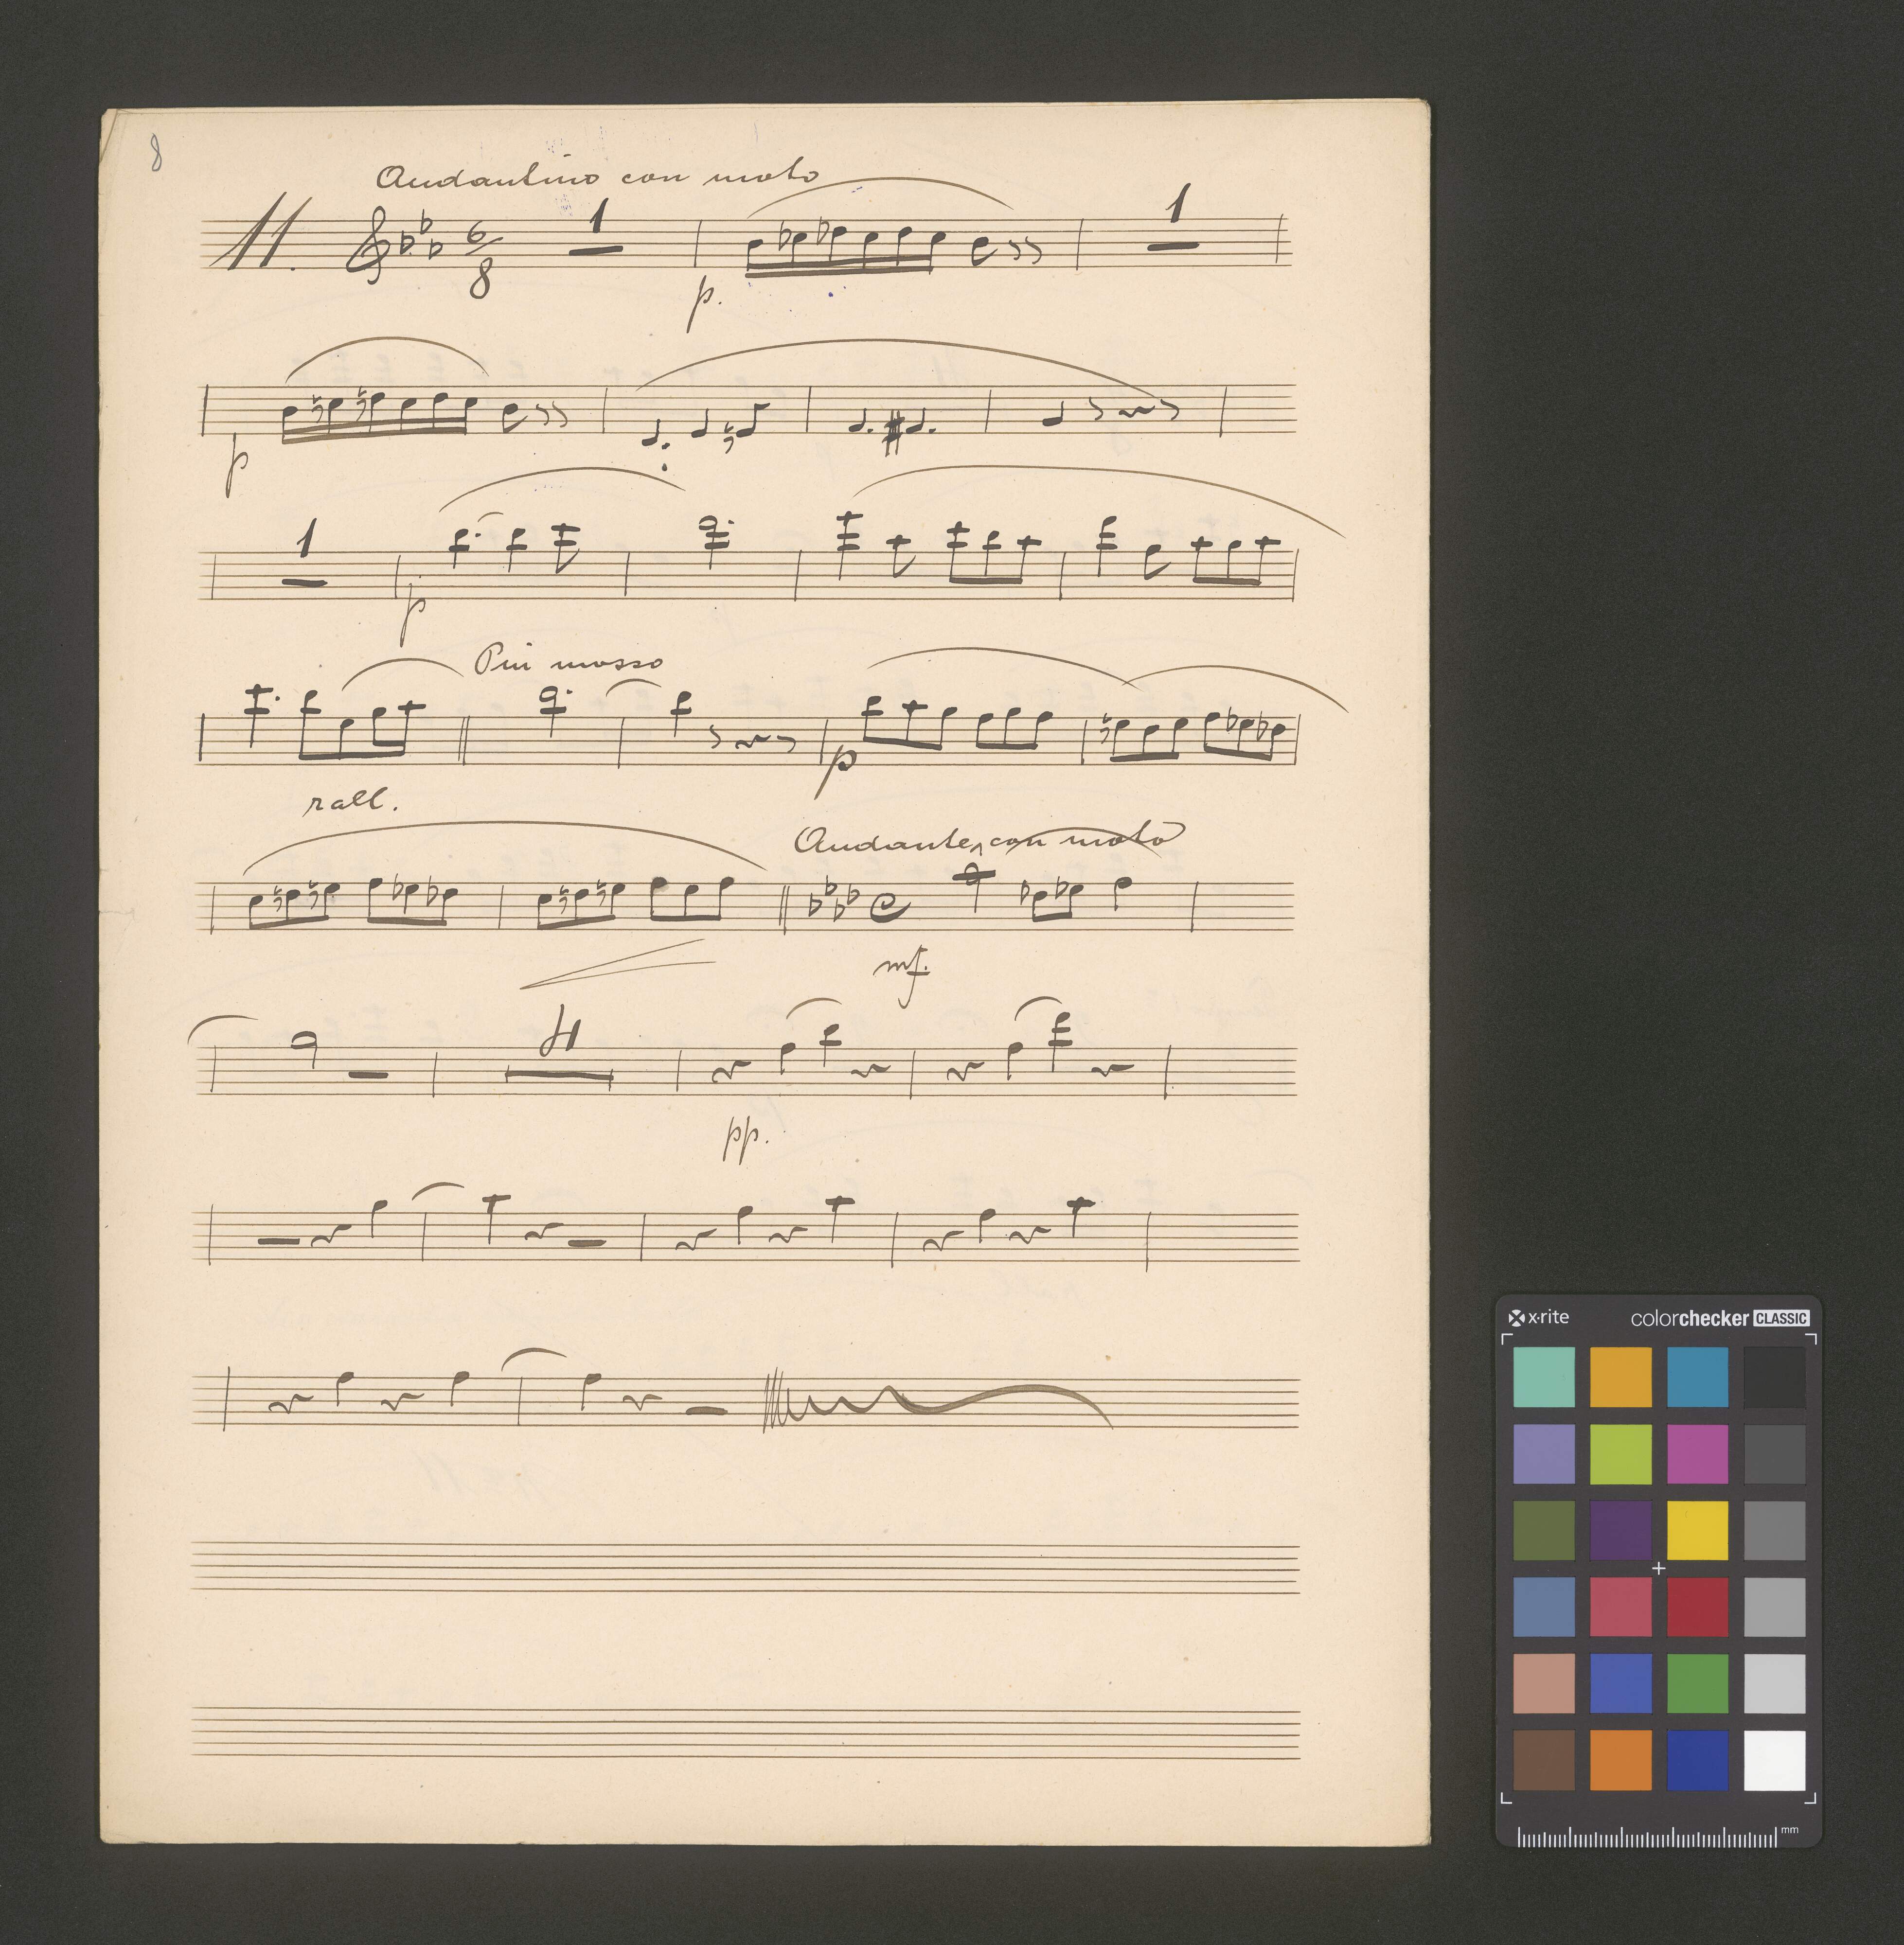 8
Andantino con moto
11. 6/8 1 1
p.
p
1
p
Più mosso
p
rall.
Andante con moto
mf.
4
pp.
x·rite colorchecker CLASSIC
mm